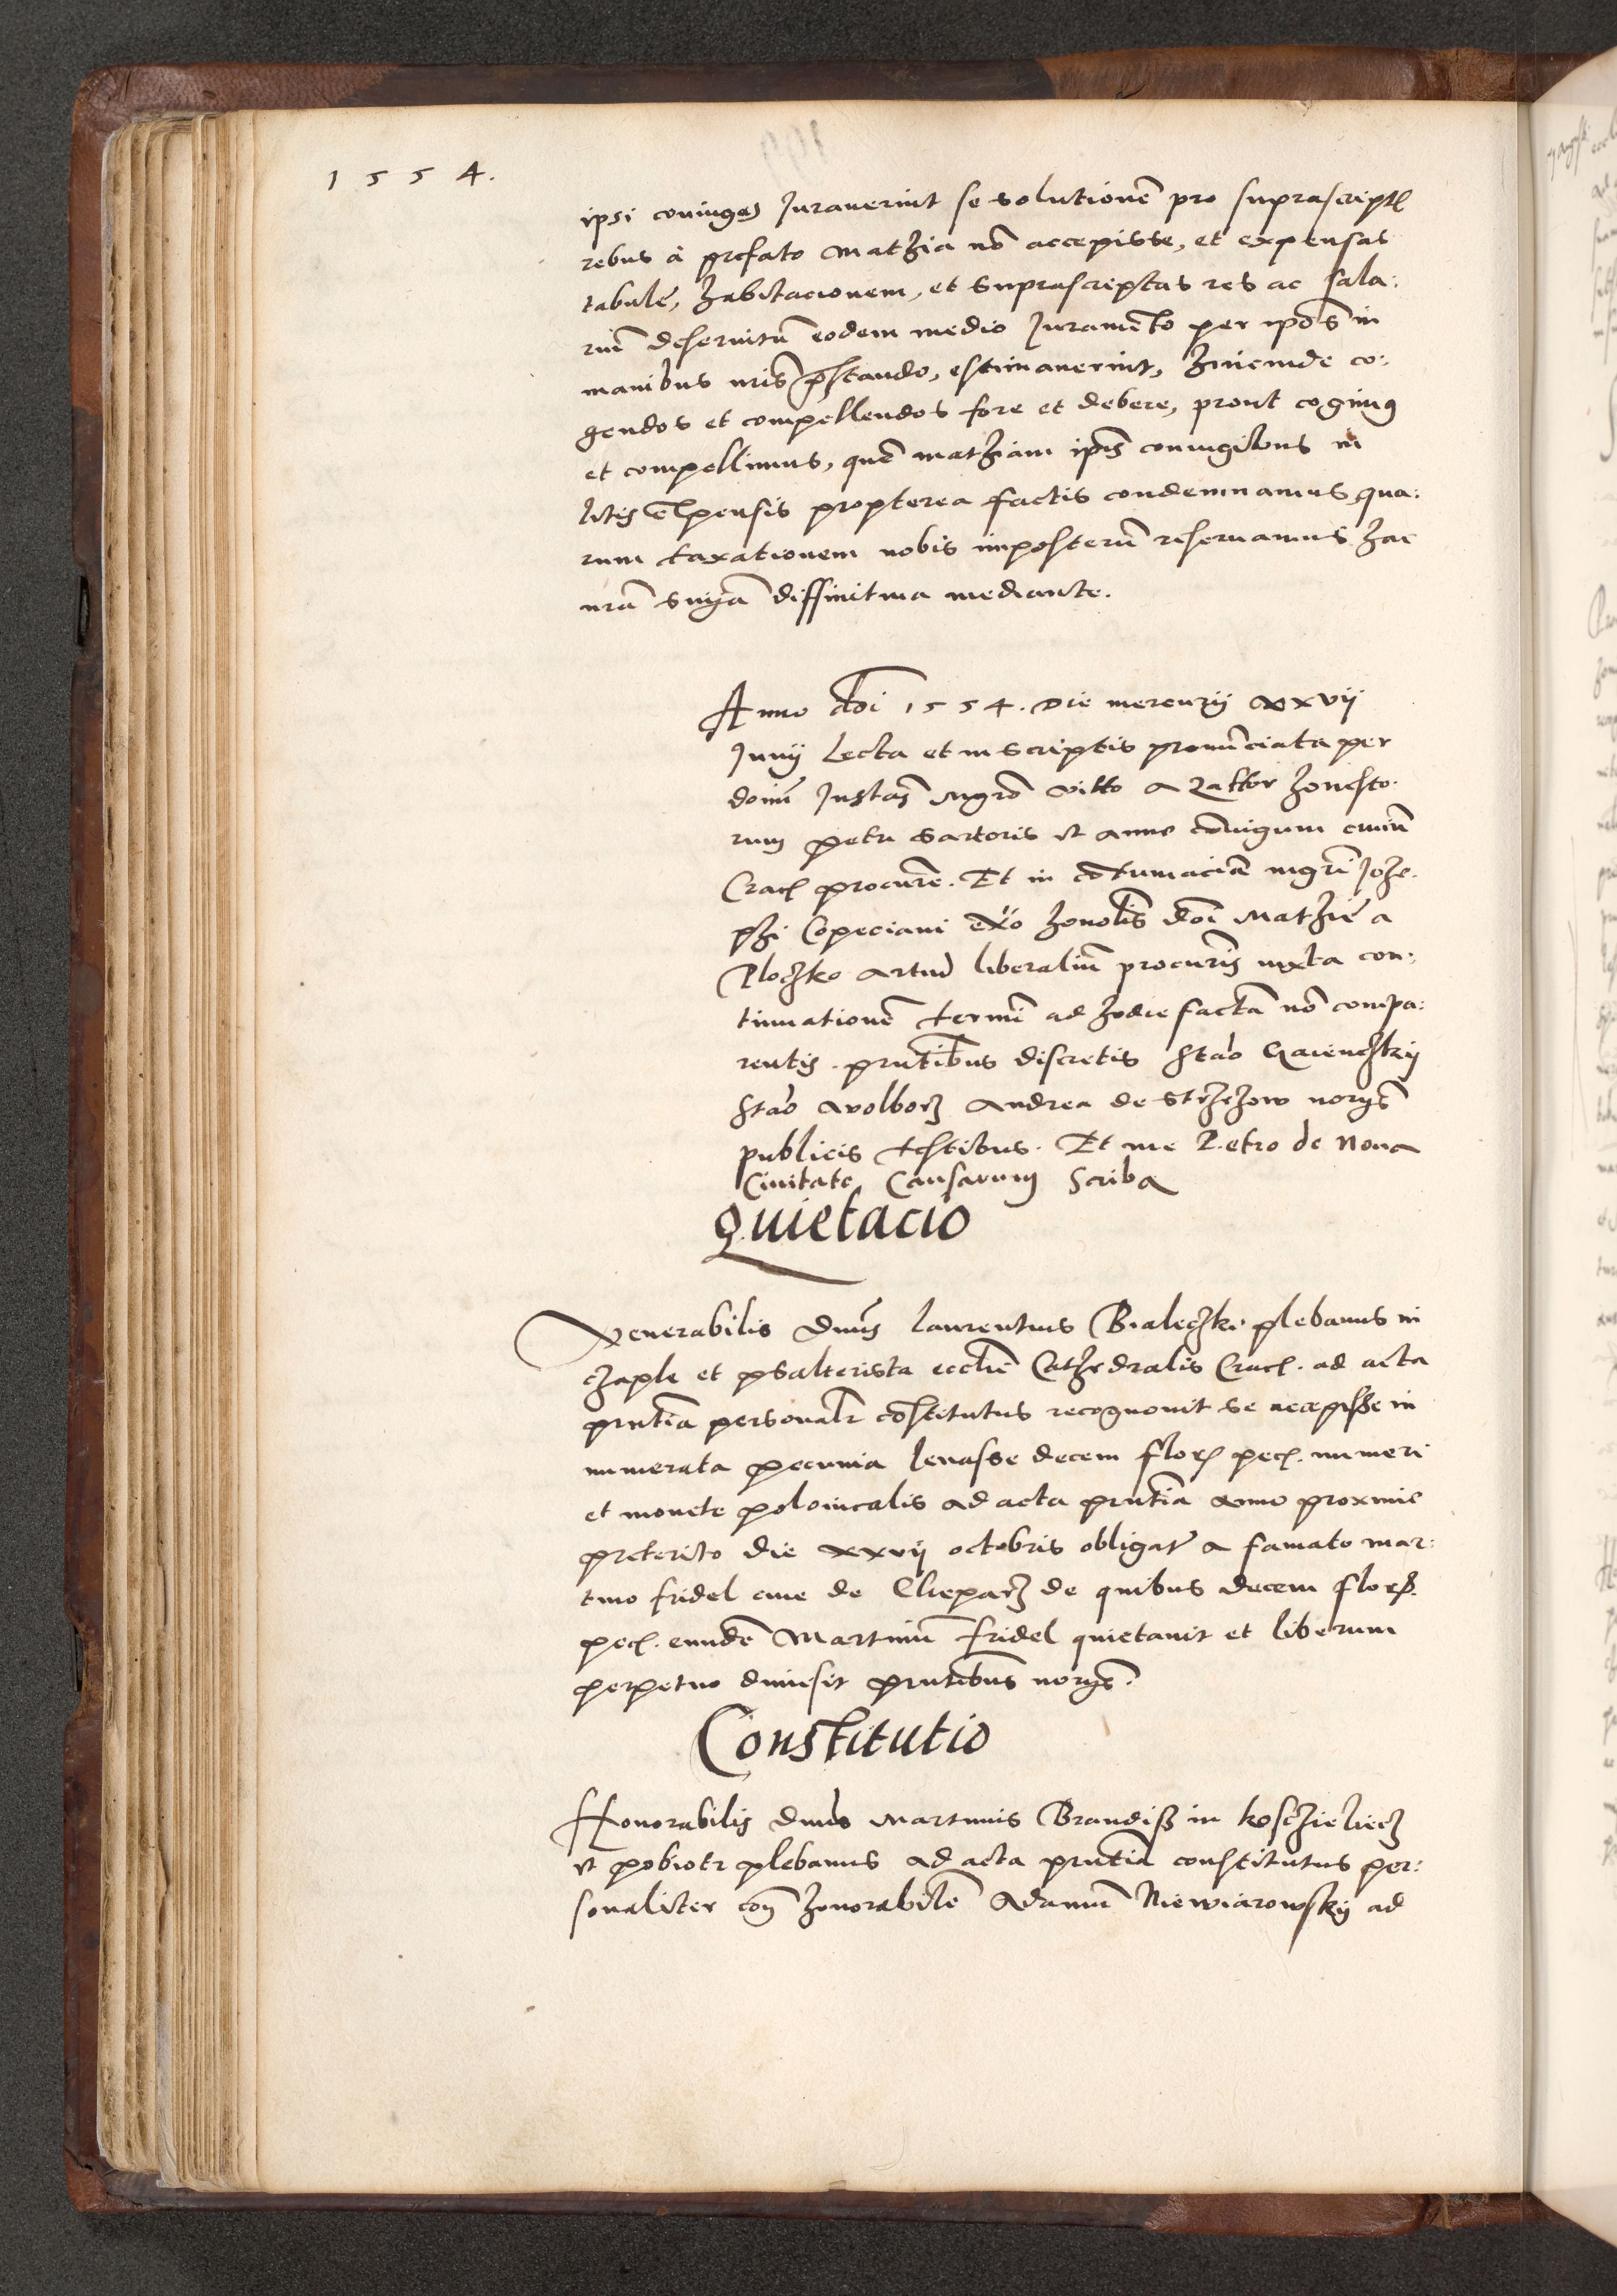 1554.
ipsi coniuges Iurauerint se solutionē pro suprascript
rebus à prefato Mathia nō accepisse, et expensas
tabulę, habitacionem, et suprascriptas res ac sala:
riū deseruitū eodem medio Iuramēto per ipōs in
manibus nrīs prestando, estimauerint, huiusmodi co:
gendos et compellendos fore et debere, prout cogimus
et compellimus, quē Mathiam ipīs coniugibus in
litis expensis propterea factis condemnamus, qua:
rum taxationem nobis imposterū reseruamus hac
nrā snīa diffinitiua mediante.
Anno dōi 1554. Die mercurij xxvij
Iunij Lecta et in scriptis pronūciata per
donū Instan mgrō vitto a honesto:
rum petri sartoris et anne cōiugum ciuiū
Crac procurē. Et in cōtumaciā mgrī Iose:
phi Copeciani exo honolis dōi Mathię a
Ploczko artiū liberaliū procuris iuxta con:
tinuationē termī ad hodie factā nō compa:
rentis. prntibus discretis Stāo
Stāo Wolborz Andrea de Strzezow norijs
publicis testibus. Et me Petro de Noua
Ciuitate Causarum Scriba
Quietacio
Venerabilis Dnus Laurentius Bialeczki plebanus in
czaple et psalterista ecclię Cathedralis Crac. ad acta
prntia personalr cōstitutus recognouit se accepisse in
numerata pecunia leuasse decem flor pec. numeri
et monete polonicalis ad acta prntia anno proxime
preterito die xxvij octobris obligat a famato mar:
tino fridel ciue de Cleparz de quibus decem flor.
pec. eundē Martinū fridel quietauit et liberum
perpetuo dimisit prntibus norijs.
Constitutio
Honorabilis dnus Martinus Brandisz in koscziecliecz
et pobiotr plebanus ad acta prntia constitutus per:
sonaliter con honorabilē Adamū Niewiarowskij ad